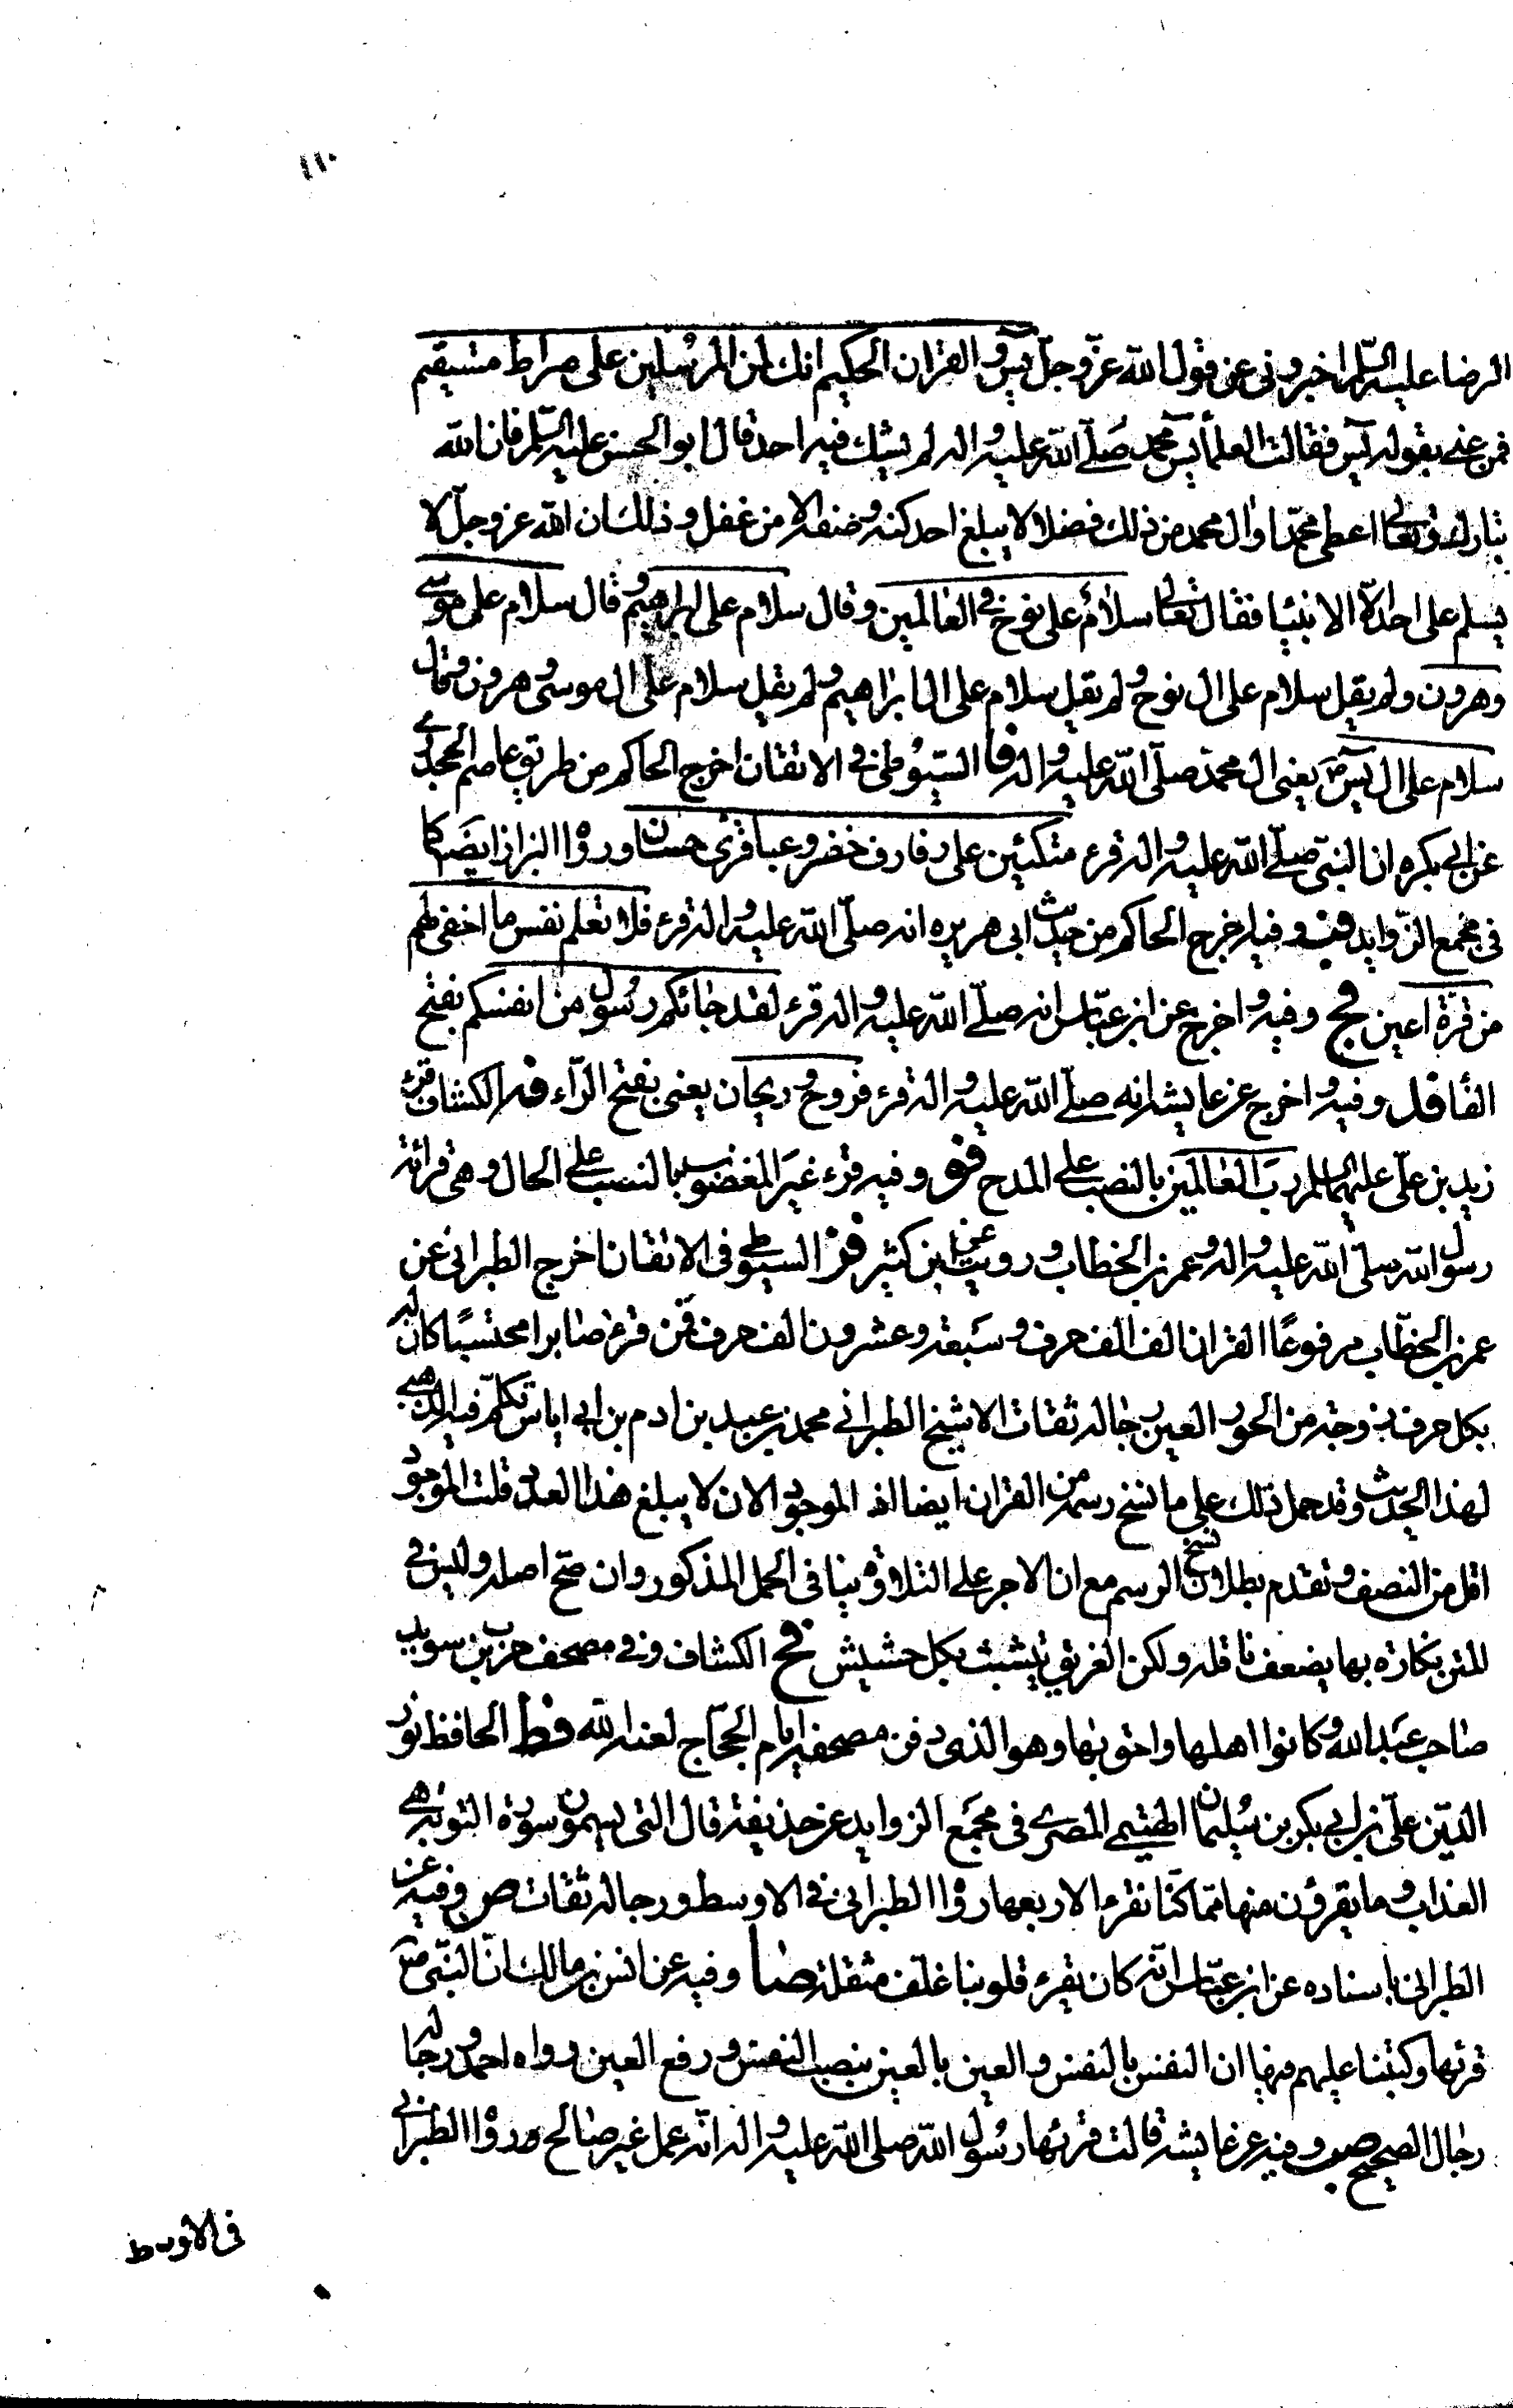 ١١٠
الرضا عليه السلم اخبروني عن قول الله عزّ وجلّ يس والقران الحكيم انك لمن المرسلين على صراط مستقيم
فمن عنى بقوله يس فقالت العلمآ يس محمد صلّى الله عليه واله لم يشك فيه احد قال ابو الحسن عليه السلم فان الله
تبارك وتعالى اعطى محمّدا وال محمد من ذلك فضلا لا يبلغ احد كنه وصفه الا من عقل وذلك ان الله عز وجلّ لا
يسلم على احد الا الانبيا فقال تعالى سلام على نوح في العالمين وقال سلام على ابراهيم وقال سلام على موسى
وهرون ولم يقل سلام على ال نوح ولم يقل سلام على ال ابراهيم ولم يقل سلام على ال موسى وهرون وقال
سلام على ال يس يعني ال محمد صلّى الله عليه واله السيوطي في الاتقان اخرج الحاكم من طريق عاصم الجحدري
عن ابي بكره ان النبي صلّى الله عليه واله قرء متكئين على رفارف خضر وعباقري حسان ورواا البزاز ايضا كما
في مجمع الزوايد وفيه اخرج الحاكم من حديث ابي هريره انه صلّى الله عليه واله قرء فلا تعلم نفس ما اخفى لهم
من قرة اعين فح وفيه واخرج عن ابن عبّاس انه صلّى الله عليه واله قرء لقد جائكم رسول من انفسكم بفتح
الفا فد وفيه واخرج عن عايشه انه صلّى الله عليه واله قرء فروح وريحان يعني بفتح الرّاء فه الكشاف قرء
زيد بن علي عليهما السلم ربّ العالمين بالنصب على المدح فو وفيه قرء غير المغضوب بالنصب على الحال وهي قرائة
رسول الله صلّى الله عليه واله وعمر بن الخطاب ورويت عن ابن كثير فز السيوطي في الاتقان اخرج الطبراني عن
عمر بن الخطّاب مرفوعًا القران الف الف حرف وسبعة وعشرون الف حرف فمن قرء صابرا محتسبًا كان له
بكل حرف زوجة من الحور العين رجاله ثقات الا شيخ الطبراني محمد بن عبيد بن ادم بن ابي اياس تكلّم فيه الذهبي
لهذا الحديث وقد حمل ذلك على ما نسخ رسمه من القران ايضا اذ الموجود الان لا يبلغ هذا العدد قلت الموجود
اقل من النصف وتقدم بطلان نسخ الرسم مع ان الاجر على التلاوة ينافي الحمل المذكور وان صحّ اصله وليس في
المتن نكارة بها يضعف ناقله ولكن الغريق يتشبث بكل حشيش فح الكشاف وفي مصحف حرب بن سويد
صاحب عبد الله وكانوا اهلها واحق بها وهو الذي دفن مصحفه ايام الحجّاج لعنه الله فط الحافظ نور
الدّين عليّ بن ابي بكر بن سليمان الهيثمي المصري في مجمع الزوايد عن حذيفة قال التي يسمون سورة التوبة هي
العذاب وما يقرؤن منها مما كنّا نقرء الا ربعها رواا الطبراني في الاوسط ورجاله ثقات ص وفيه عن
الطبراني باسناده عن ابن عبّاس انّه كان يقرء قلوبنا غلف مثقلة صا وفيه عن انس بن مالك انّ النبّي ص
قرئها وكتبنا عليهم فيها ان النفس بالنفس والعين بالعين بنصب النفس ورفع العين رواه احمد ورجاله
رجال الصحيح صب وفيه عن عايشه قالت قرئها رسول الله صلى الله عليه واله انّه عمل غير صالح ورواا الطبراني
في الاوسط